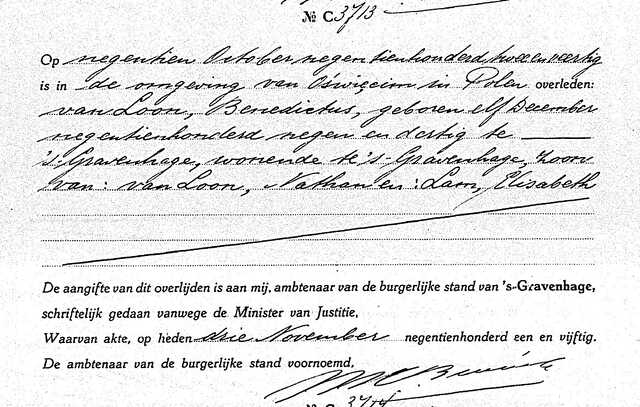 № C 3713
Op negentien October negentienhonderd twee en veertig
is in de omgeving van Oświęcim in Polen overleden:
van Loon, Benedictus, geboren elf December
negentienhonderd negen en dertig te
's-Gravenhage, wonende te 's-Gravenhage, zoon
van: van Loon, Nathan en: Lam, Elisabeth
De aangifte van dit overlijden is aan mij, ambtenaar van de burgerlijke stand van 's-Gravenhage,
schriftelijk gedaan vanwege de Minister van Justitie.
Waarvan akte, op heden drie November negentienhonderd een en vijftig.
De ambtenaar van de burgerlijke stand voornoemd,
№ C 3714